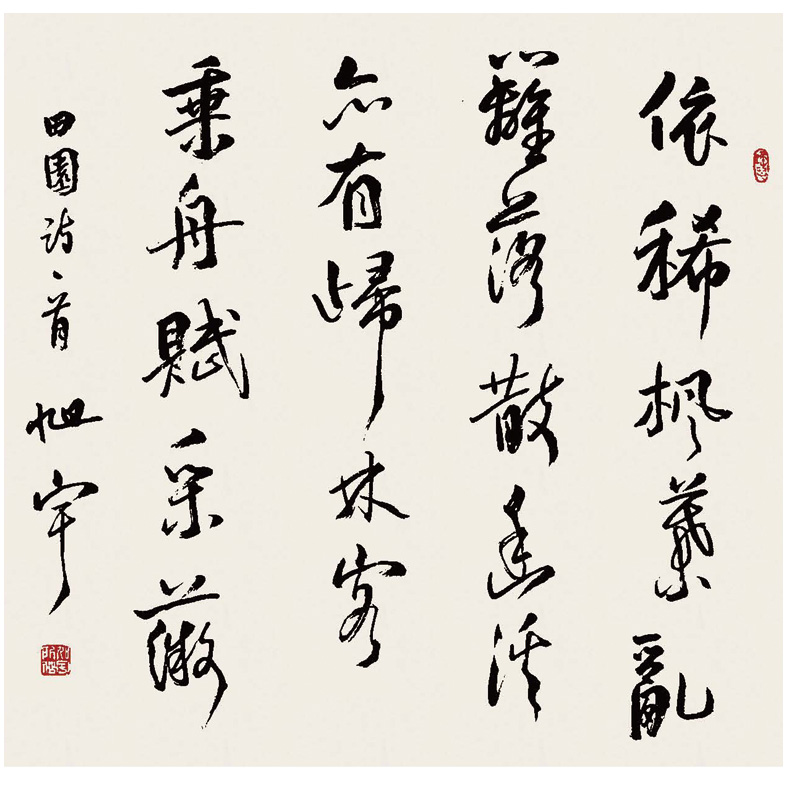 依稀楓葉亂
籬落散幽溪
亦有歸林客
乘舟賦采薇
田園詩一首 旭宇